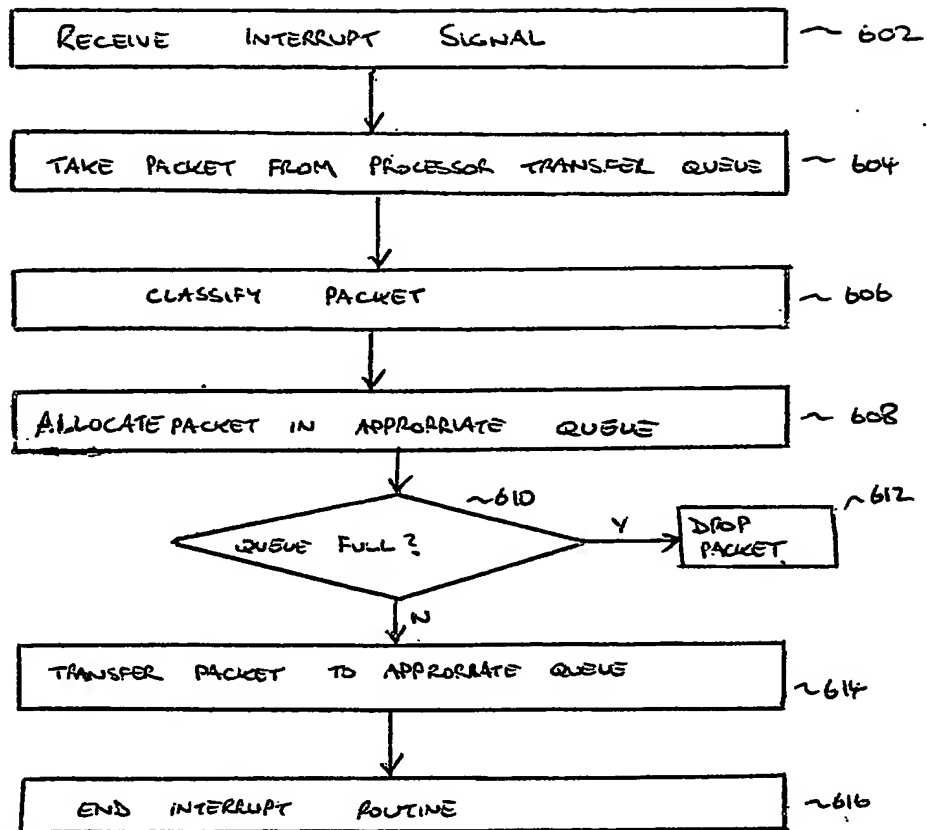 RECEIVE INTERRUPT SIGNAL ~ 602
TAKE PACKET FROM PROCESSOR TRANSFER QUEUE ~ 604
CLASSIFY PACKET ~ 606
ALLOCATE PACKET IN APPRORRIATE QUEUE ~ 608
~610
QUEUE FULL?
Y
~612
DROP
PACKET.
N
TRANSFER PACKET TO APPRORRATE QUEUE ~614
END INTERRUPT ROUTINE ~616